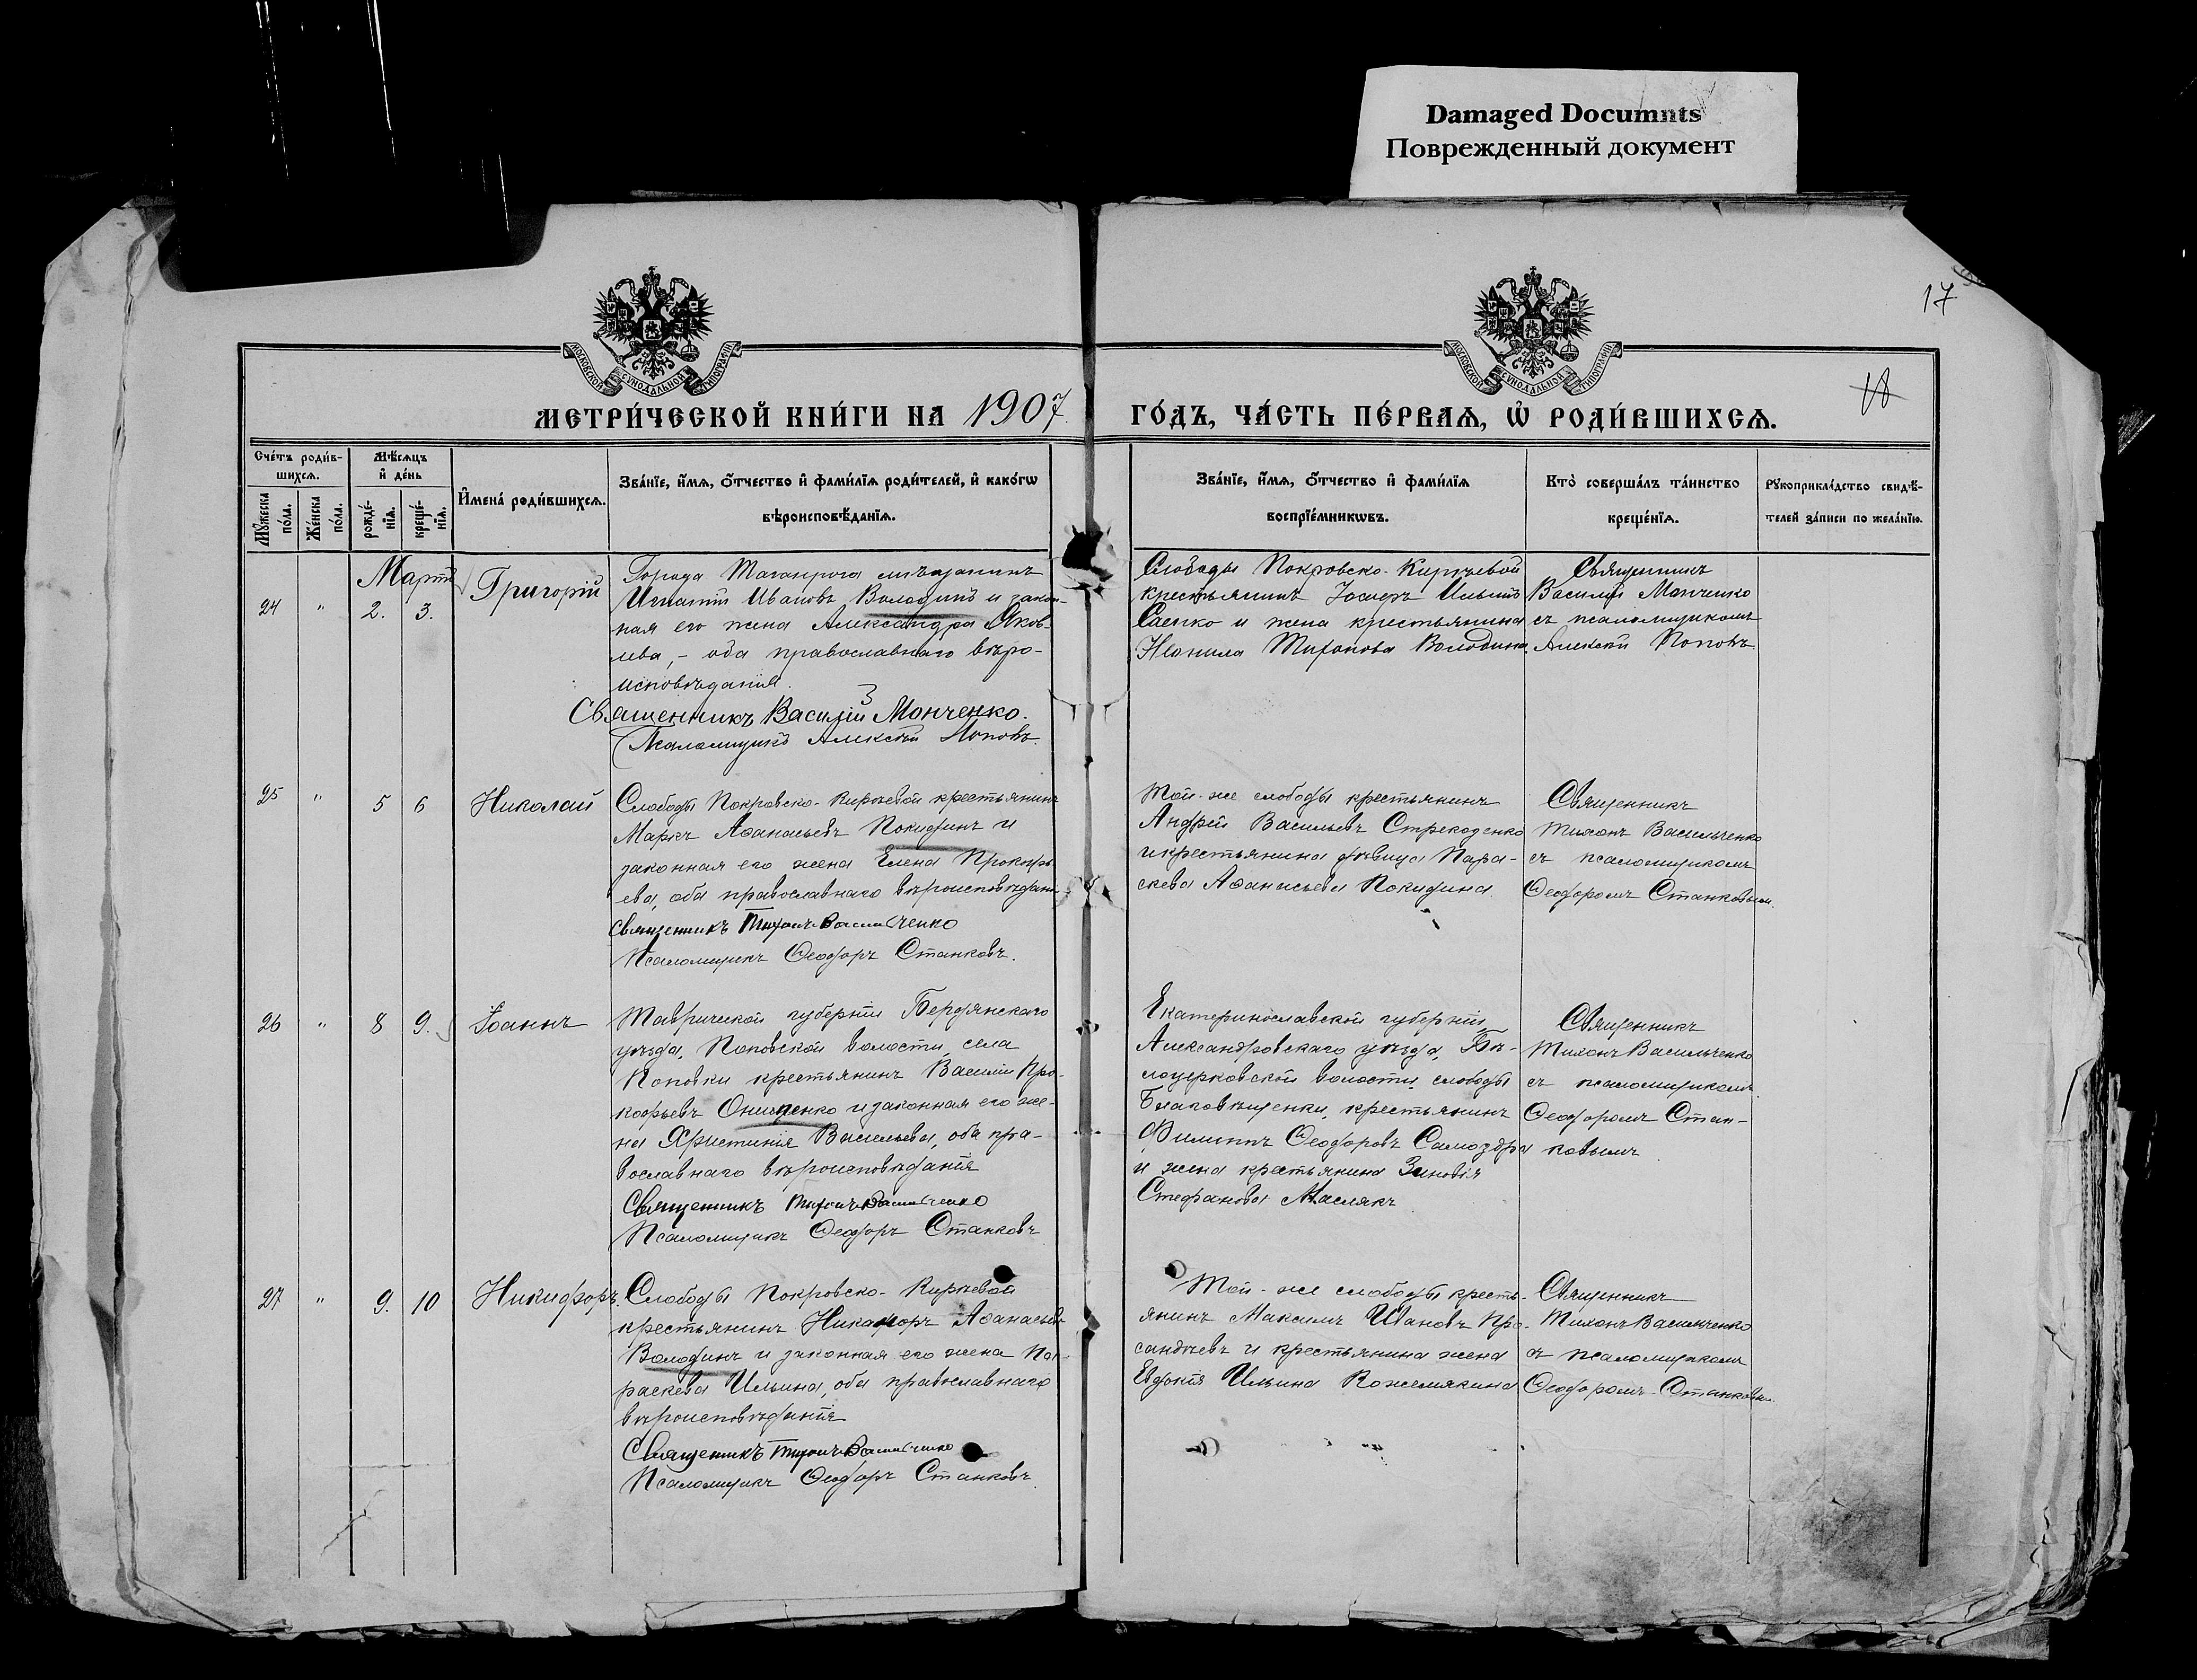 Damaged Documnts
Поврежденный документ
17
18
МОСКОВСКОЙ СѴНОДАЛЬНОЙ ТИПОГРАФІИ
МОСКОВСКОЙ СѴНОДАЛЬНОЙ ТИПОГРАФІИ
МЕТРИ́ЧЕСКОЙ КНИ́ГИ НА 1907
ГО́ДЪ, ЧА́СТЬ ПЕ́РВАѦ, Ѡ РОДИ́ВШИХСѦ.
Сче́тъ роди́в-
шихсѧ.
Мꙋжеска по́ла.
Же́нска по́ла.
Мѣ́сѧцъ
и де́нь
рожде́-нїѧ.
креще́-нїѧ.
И҆мена̀ роди́вшихсѧ.
Зва́нїе, и҆́мѧ, ѻ҆́тчество и҆ фами́лїѧ роди́телей, и҆ како́гѡ
вѣроисповѣ́данїѧ.
Зва́нїе, и҆́мѧ, ѻ҆́тчество и҆ фами́лїѧ
воспрїе́мникѡвъ.
Кто̀ соверша́лъ та́инство
креще́нїѧ.
Рꙋкоприкла́дство свидѣ́-
телей за́писи по жела́нїю.
Мартъ
24 " 2. 3. Григорій
Города Таганрога мѣщанинъ
Игнатій Ивановъ Володинъ и закон-
ная его жена Александра Яков-
лева, - оба православнаго вѣро-
исповѣданія.
Священникъ Василій Монченко.
Псаломщикъ Алексѣй Поповъ.
Слободы Покровско-Кирѣевой
крестьянинъ Іосифъ Ильинъ
Саенко и жена крестьянина
Неонила Тихонова Володина.
Священникъ
Василій Монченко
съ псаломщикомъ
Алексѣй Поповъ.
25 " 5 6 Николай
Слободы Покровско-Кирѣевой крестьянинъ
Маркъ Аѳанасьевъ Покидинъ и
законная его жена Елена Прокофь-
ева, оба православнаго вѣроисповѣдан.
Священникъ Тихонъ Васильченко
Псаломщикъ Ѳеодоръ Станковъ.
Той-же слободы крестьянинъ
Андрей Васильевъ Стрекозенко
и крестьянина дѣвица Пара-
скева Аѳанасьева Покидина.
Священникъ
Тихонъ Васильченко
съ псаломщикомъ
Ѳеодоромъ Станковым.
26 " 8 9. Іоаннъ
Таврической губерніи Бердянскаго
уѣзда, Поповской волости, села
Поповки крестьянинъ Василій Про-
кофьевъ Онищенко и законная его же-
на Христинія Васильева, оба пра-
вославнаго вѣроисповѣданія
Священникъ Тихонъ Васильченко
Псаломщикъ Ѳеодоръ Станковъ
Екатеринославской губерніи,
Александровскаго уѣзда, Бѣ-
лоцерковской волости, слободы
Благовѣщенки, крестьянинъ
Филиппъ Ѳеодоровъ Самоздра
и жена крестьянина Зиновія
Стефанова Маслякъ
Священникъ
Тихонъ Васильченко
съ псаломщикомъ
Ѳеодоромъ Стан-
ковымъ
27 " 9. 10 Никифоръ.
Слободы Покровско-Кирѣевой
крестьянинъ Никаноръ Аѳанасьевъ
Володинъ и законная его жена Па-
раскева Ильина, оба православнаго
вѣроисповѣданія
Священикъ Тихонъ Васильченко
Псаломщикъ Ѳеодоръ Станковъ.
Той-же слободы кресть-
янинъ Максимъ Ивановъ Про-
сандѣевъ и крестьянина жена
Евдокія Ильина Кожемякина
Священникъ
Тихонъ Васильченко
съ псаломщикомъ
Ѳеодоромъ Станковы.